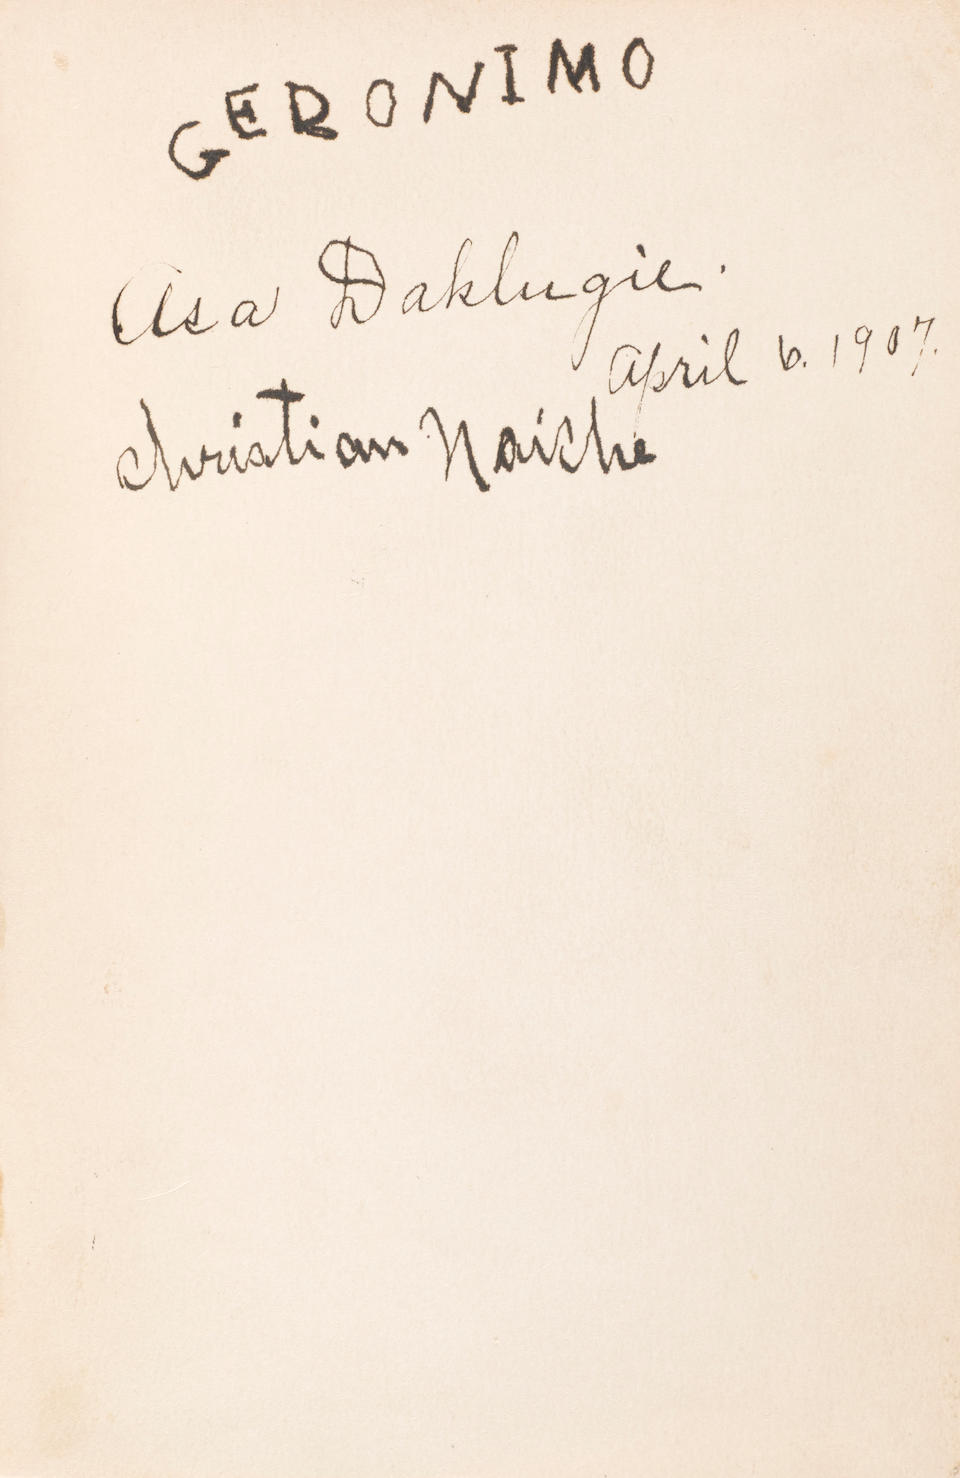 GERONIMO
Asa Daklugie.
April 6. 1907.
Christian Naiche